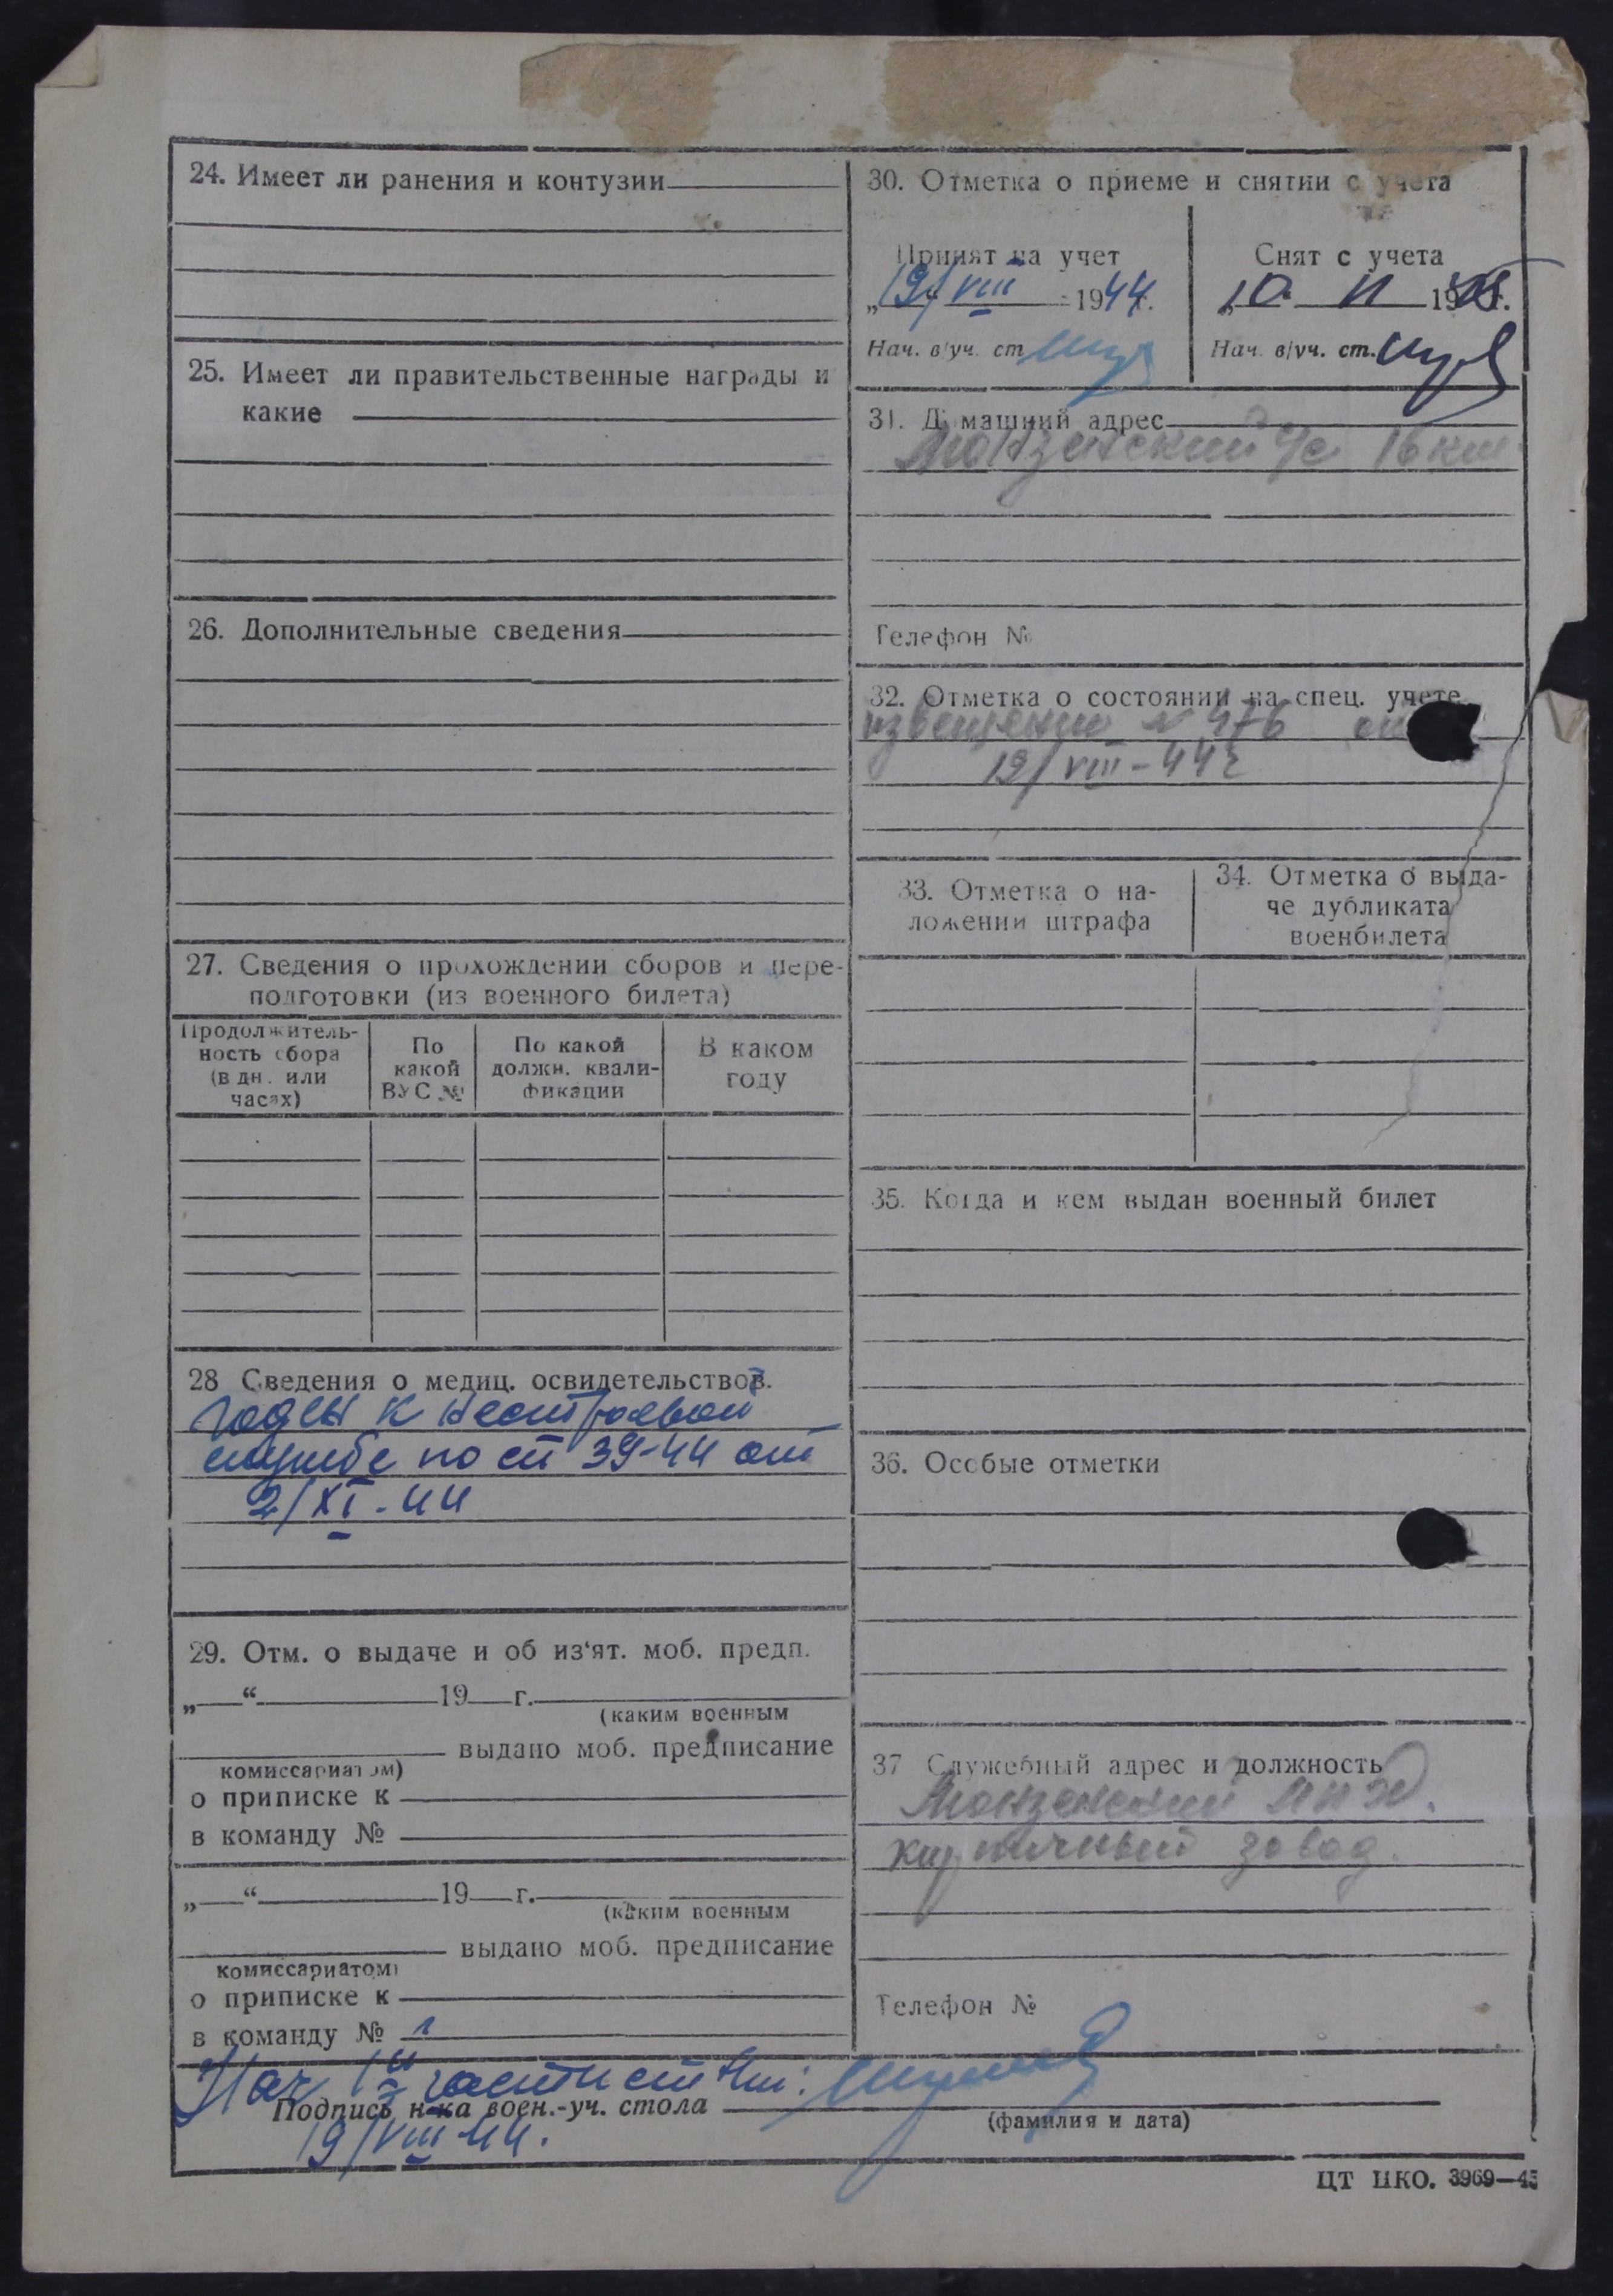 24. Имеет ли ранения и контузии
25. Имеет ли правительственные награды и
какие
26. Дополнительные сведения
27. Сведения о прохождении сборов и пере-
подготовки (из военного билета)
Продолжитель-
ность сбора
(в дн. или
часах)
По
какой
ВУС №
По какой
должн. квали-
фикации
В каком
году
28 Сведения о медиц. освидетельствов.
Годен к нестроевой
службе по ст 39-44 от
2/XI-44
29. Отм. о выдаче и об из‘ят. моб. предп.
„ “ 19 г.
(каким военным
выдано моб. предписание
комиссариатом)
о приписке к
в команду №
„ “ 19 г.
(каким военным
выдано моб. предписание
комиссариатом)
о приписке к
в команду №
30. Отметка о приеме и снятии с учета
Принят на учет
„19/VIII 1944г.
Нач. в/уч. ст.
Снят с учета
„10 II 1945г.
Нач. в/уч. ст.
31. Домашний адрес
Монзенский 16 км
Телефон №
32. Отметка о состоянии на спец. учете
извещение № 476 от
19/VIII-44г
33. Отметка о на-
ложении штрафа
34. Отметка о выда-
че дубликата
военбилета
35. Когда и кем выдан военный билет
36. Особые отметки
37 Служебный адрес и должность
Монзенский
кирпичный завод.
Телефон №
Нач части ст
Подпись н-ка воен.-уч. стола
(фамилия и дата)
19/VIII-44.
ЦТ НКО. 3969—45